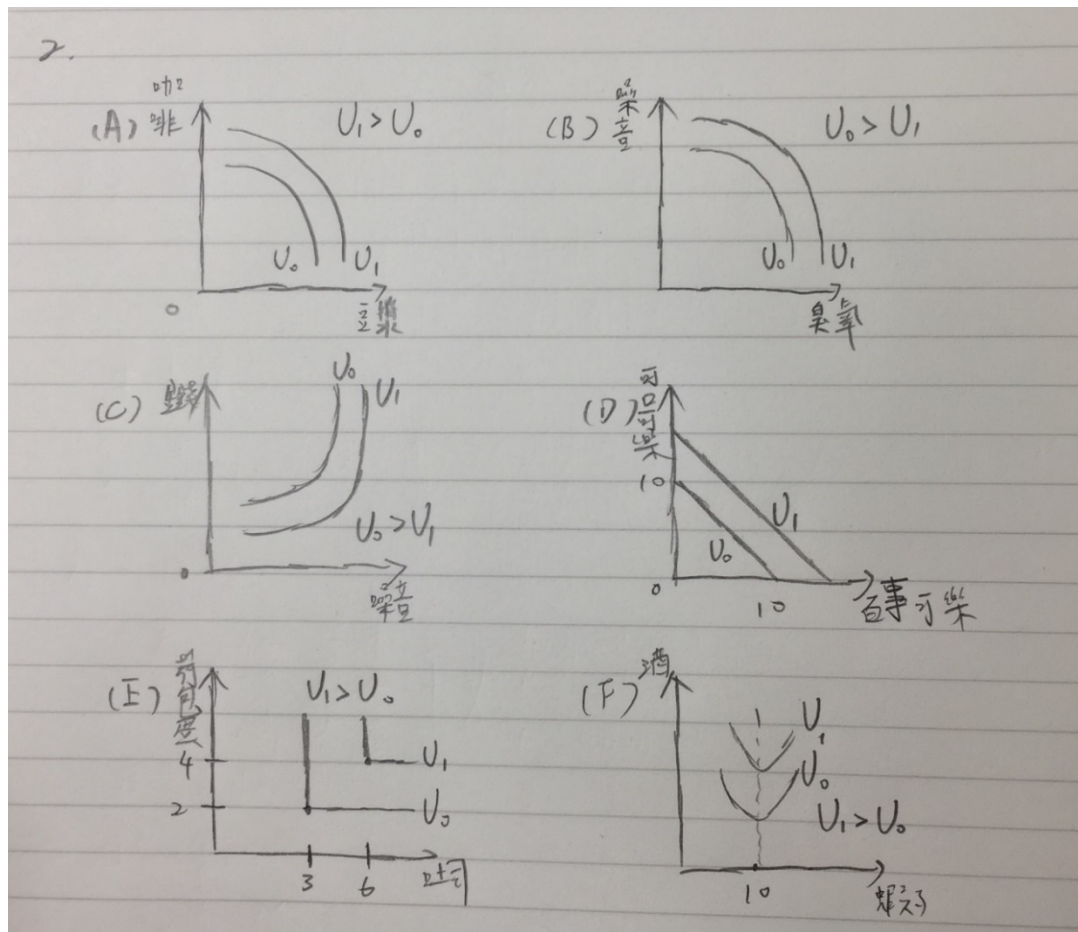 2.
(A) 咖啡
U₁ > U₀
U₀ U₁
0
豆漿
(B) 噪音
U₀ > U₁
U₀ U₁
臭氧
(C)
U₀ U₁
U₀ > U₁
0
噪音
(D) 可口可樂
10
U₁
U₀
0
10
百事可樂
(E)
U₁ > U₀
4
U₁
2
U₀
3
6
(F) 酒
U₁
U₀
U₁ > U₀
10
蝦子